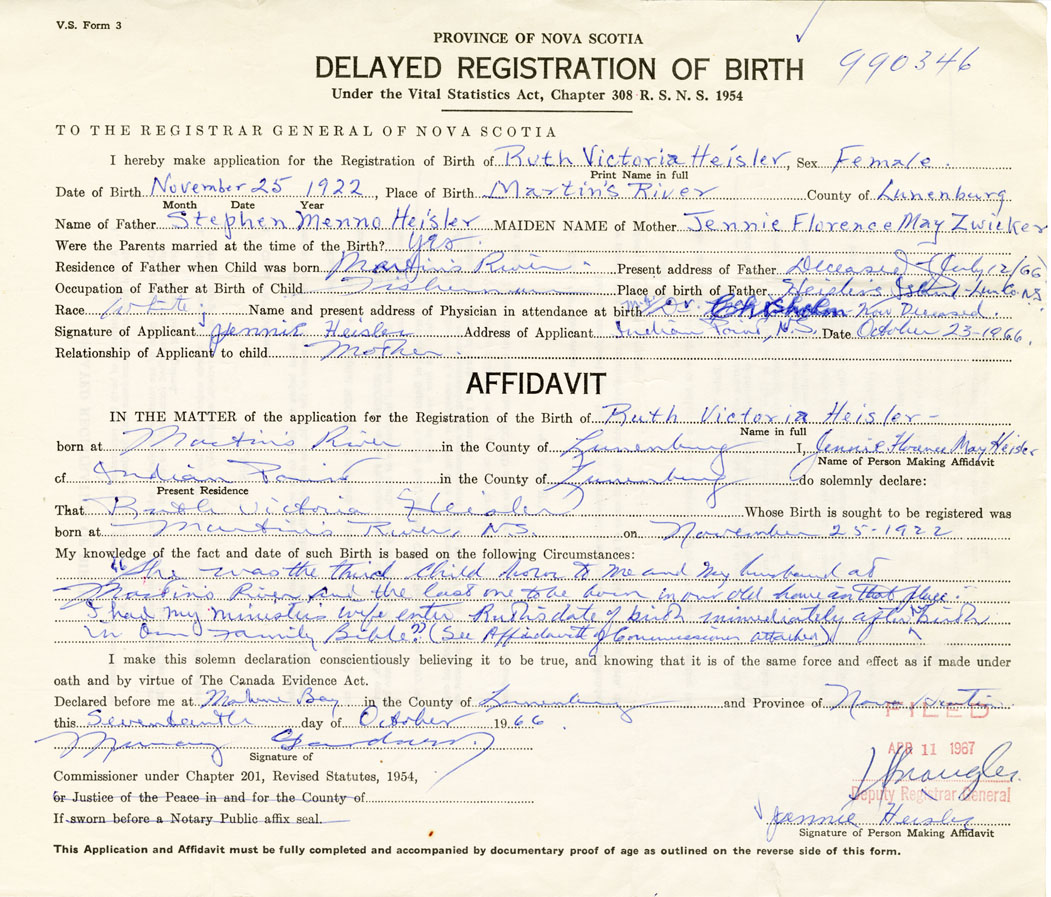 V.S. Form 3
PROVINCE OF NOVA SCOTIA
DELAYED REGISTRATION OF BIRTH
990346
Under the Vital Statistics Act, Chapter 308 R. S. N. S. 1954
TO THE REGISTRAR GENERAL OF NOVA SCOTIA
I hereby make application for the Registration of Birth of Ruth Victoria Heisler, Sex Female.
Print Name in full
Date of Birth November 25 1922, Place of Birth Martin's River County of Lunenburg
Month Date Year
Name of Father Stephen Menno Heisler MAIDEN NAME of Mother Jennie Florence May Zwicker
Were the Parents married at the time of the Birth? Yes.
Residence of Father when Child was born Martin's River. Present address of Father Deceased July 12/66
Occupation of Father at Birth of Child Fisherman Place of birth of Father Heisler's Island - Lunb. Co. N.S.
Race White; Name and present address of Physician in attendance at birth Dr. Chisholm Now Deceased.
Signature of Applicant Jennie Heisler Address of Applicant Indian Point, N.S. Date October 23-1966.
Relationship of Applicant to child Mother.
AFFIDAVIT
IN THE MATTER of the application for the Registration of the Birth of Ruth Victoria Heisler-
Name in full
born at Martin's River in the County of Lunenburg I, Jennie Florence May Heisler
Name of Person Making Affidavit
of Indian Point in the County of Lunenburg do solemnly declare:
Present Residence
That Ruth Victoria Heisler Whose Birth is sought to be registered was
born at Martin's River, N.S. on November 25-1922
My knowledge of the fact and date of such Birth is based on the following Circumstances:
"She was the third child born to me and my husband at
Martin's River and the last one to be born in our old home in that place.
I had my minister's wife enter Ruth's date of birth immediately after Birth
in our Family Bible" (See Affidavit of Commissioner attached)
I make this solemn declaration conscientiously believing it to be true, and knowing that it is of the same force and effect as if made under
oath and by virtue of The Canada Evidence Act.
Declared before me at Mahone Bay in the County of Lunenburg and Province of Nova Scotia
this Seventeenth day of October 1966.
FILED
Murray
Signature of
APR 11 1967
Commissioner under Chapter 201, Revised Statutes, 1954,
or Justice of the Peace in and for the County of
Deputy Registrar General
If sworn before a Notary Public affix seal.
Jennie Heisler
Signature of Person Making Affidavit
This Application and Affidavit must be fully completed and accompanied by documentary proof of age as outlined on the reverse side of this form.